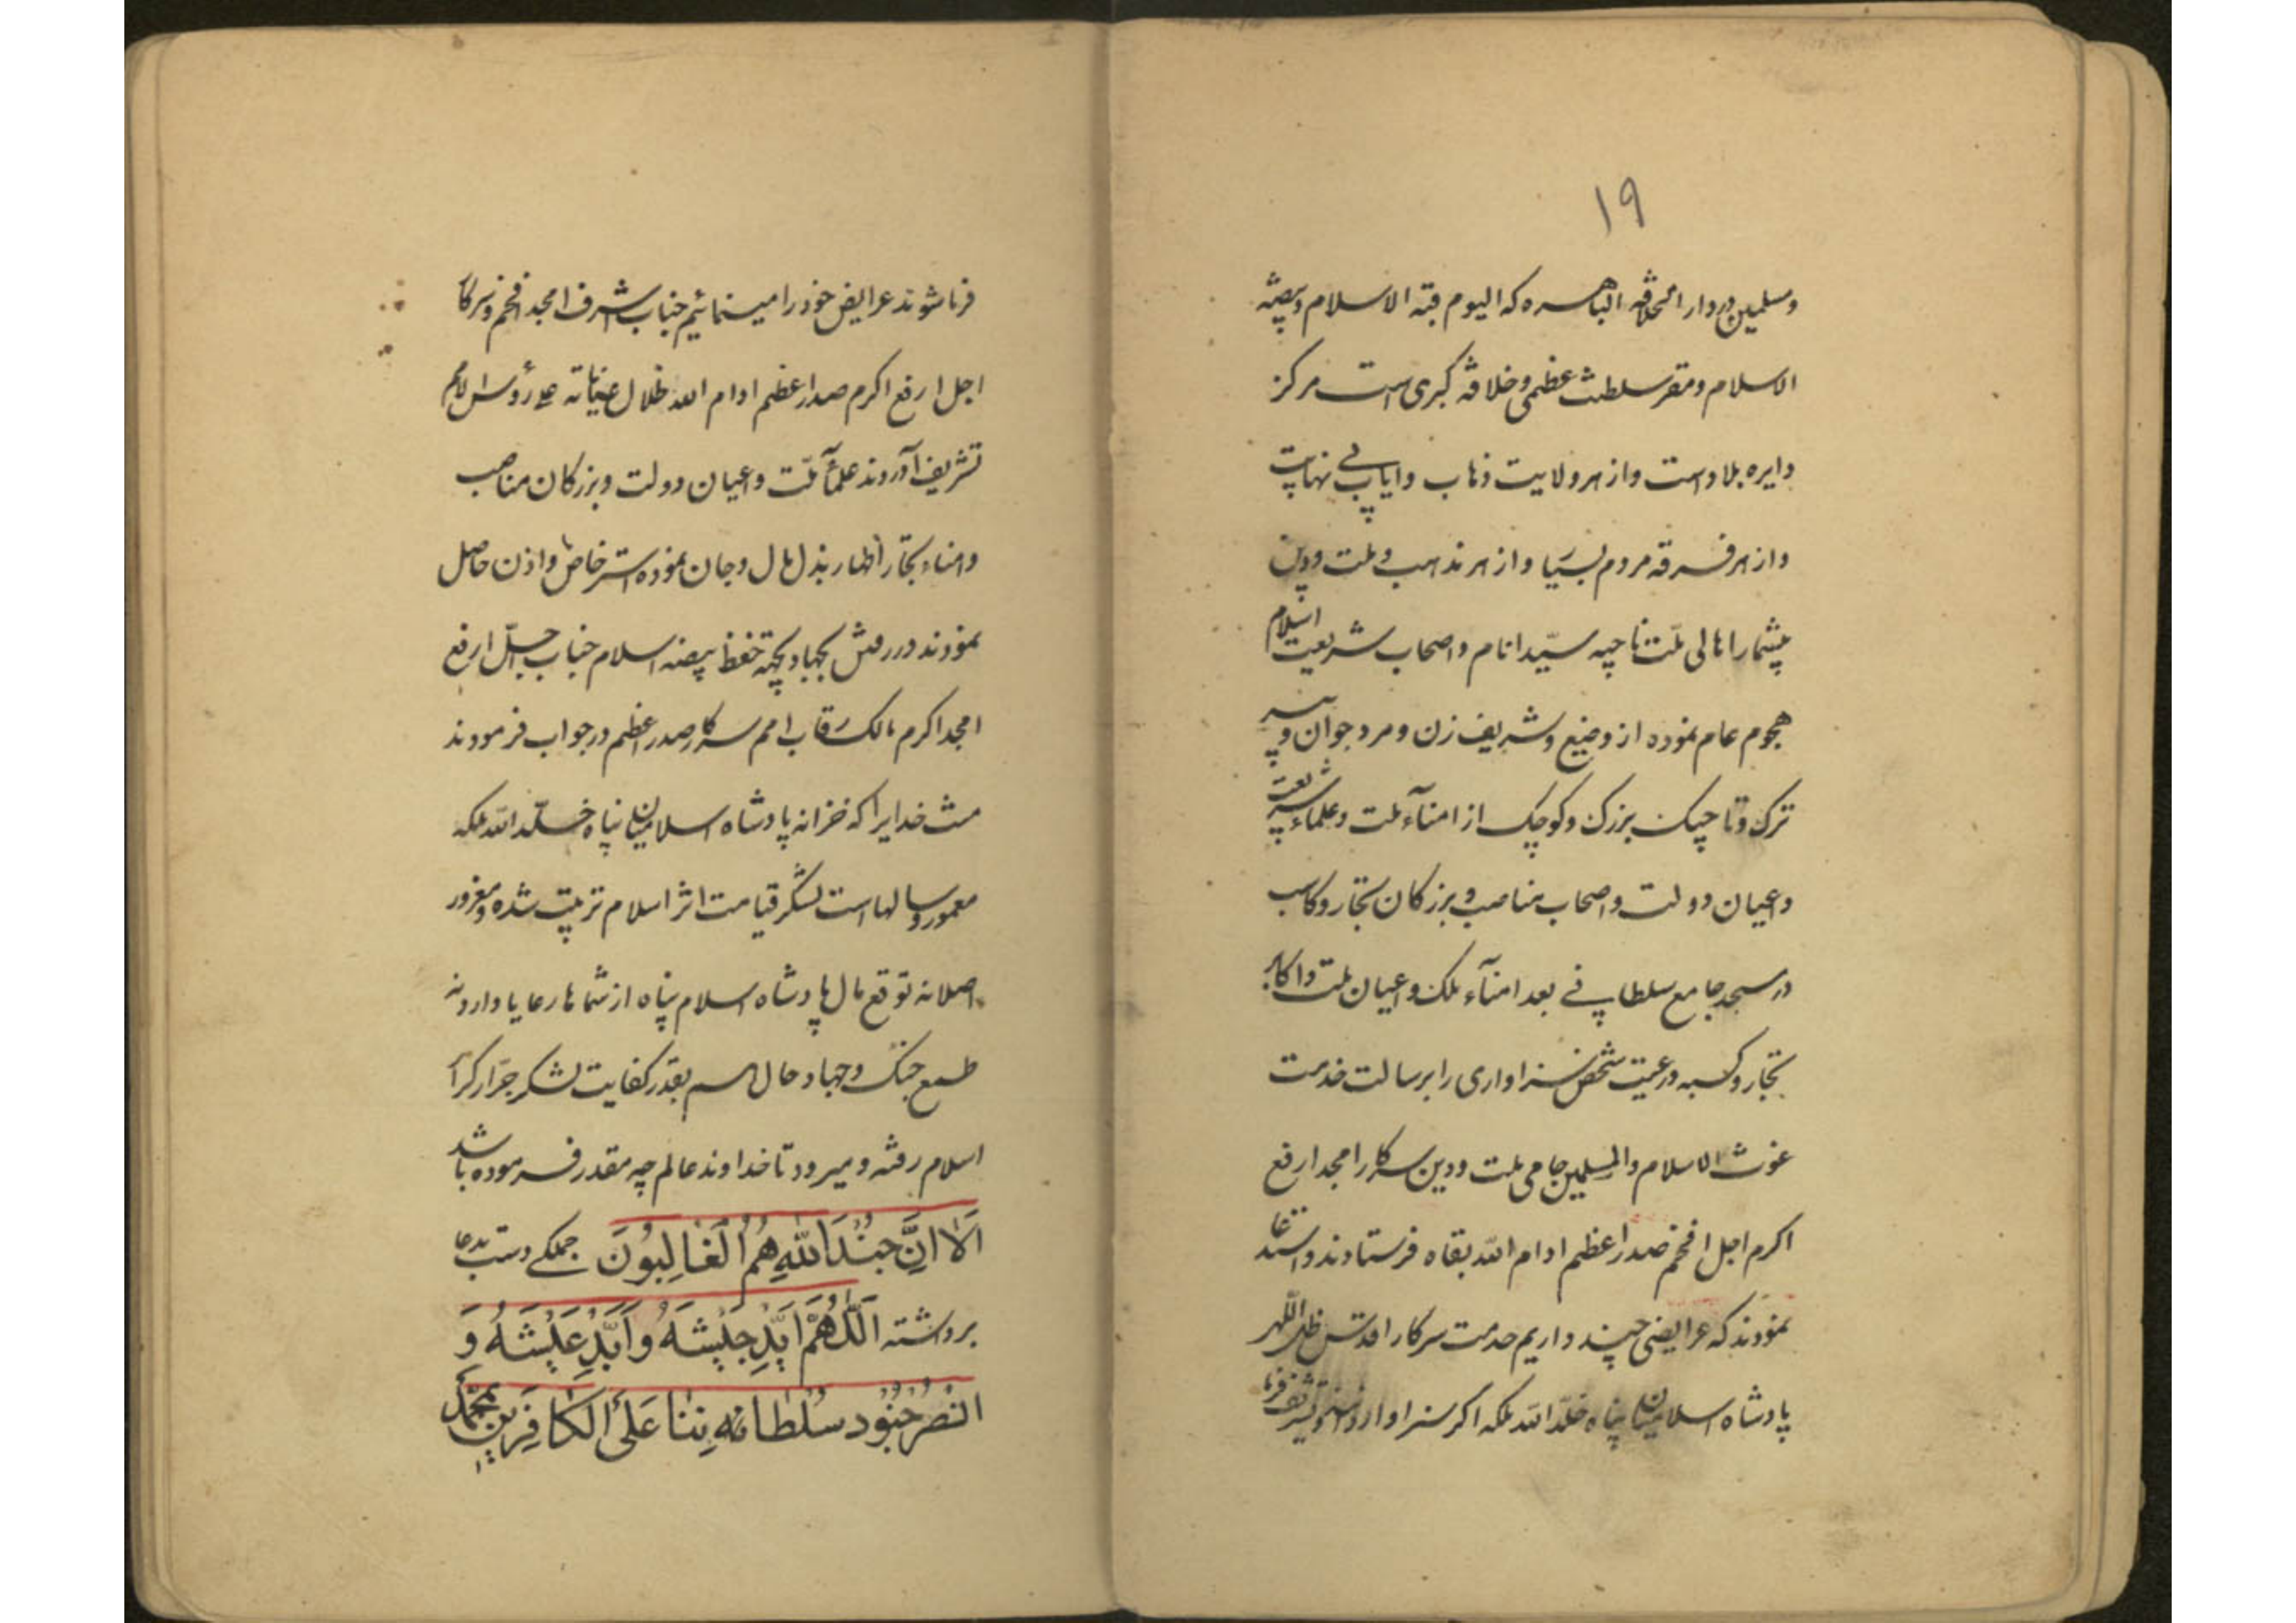 ۱۹
ومسلمین در دار الخلافه الباهره که الیوم قبة الاسلام وبیضه
الاسلام ومقر سلطنت عظمی وخلافه کبری است مرکز
دایره بلاد است واز هر ولایت ذهاب وایاب بی نهایت
واز هر فرقه مردم بسیار واز هر مذهب وملت ودین
بیشمار اهالی ملت ناجیه سیّد انام واصحاب شریعت اسلام
هجوم عام نموده از وضیع وشریف زن ومرد جوان وپیر
ترک وتاجیک بزرک وکوچک از امنآء ملت وعلماء شریعت
واعیان دولت واصحاب مناصب وبزرکان تجّار وکاسب
در مسجد جامع سلطانی بعد امنآء ملک واعیان ملت واکابر
تجّار وکسبه ورعیت شخص سزاواری را برسالت خدمت
غوث الاسلام والمسلمین حامی ملت ودین سرکار امجد ارفع
اکرم اجل افخم صدر اعظم ادام اللّه بقاه فرستادند واستدعا
نمودند که عرایضی چند داریم خدمت سرکار اقدس ظل اللّهی
پادشاه اسلامیان پناه خلّد اللّه ملکه اکر سزاوار دانند وتشریف
فرما شوند عرایض خود را مینمائیم جناب اشرف امجد افخم وسرکار
اجل ارفع اکرم صدر اعظم ادام الله ظلال عنایاته علی رؤس الامم
تشریف آوردند علمآء ملّت واعیان دولت وبزرکان مناصب
وامناء تجّار اظهار بذل مال وجان نموده استرخاص واذن حاصل
نمودند در رفتن بجهاد وبجهة حفظ بیضه اسلام جناب اجلّ ارفع
امجد اکرم مالک رقاب امم سرکار صدر اعظم در جواب فرمودند
منت خدایرا که خزانه پادشاه اسلامیان پناه خلّد اللّه ملکه
معمور وسالهاست لشکر قیامت اثر اسلام تربیت شده ومغرور
اصلا نه توقع مال پادشاه اسلام پناه از شماها رعایا دارد ونه
طمع جنک وجهاد وحال هم بقدر کفایت لشکر جرّار کرّار
اسلام رفته ومیرود تا خداوند عالم چه مقدر فرموده باشد
اَلٰا اِنَّ جُنْدَ اللّٰهِ هُمُ الْغٰالِبُونَ جملکی دست بدعا
برداشته اَللّٰهُمَّ اَیِّدِ جَیْشَهُ وَاَبِّدْ عَیْشَهُ وَ
انْصُرْ جُنُودَ سُلْطٰانِهِ بِنٰا عَلَی الْکٰافِرِینَ بمحمّد